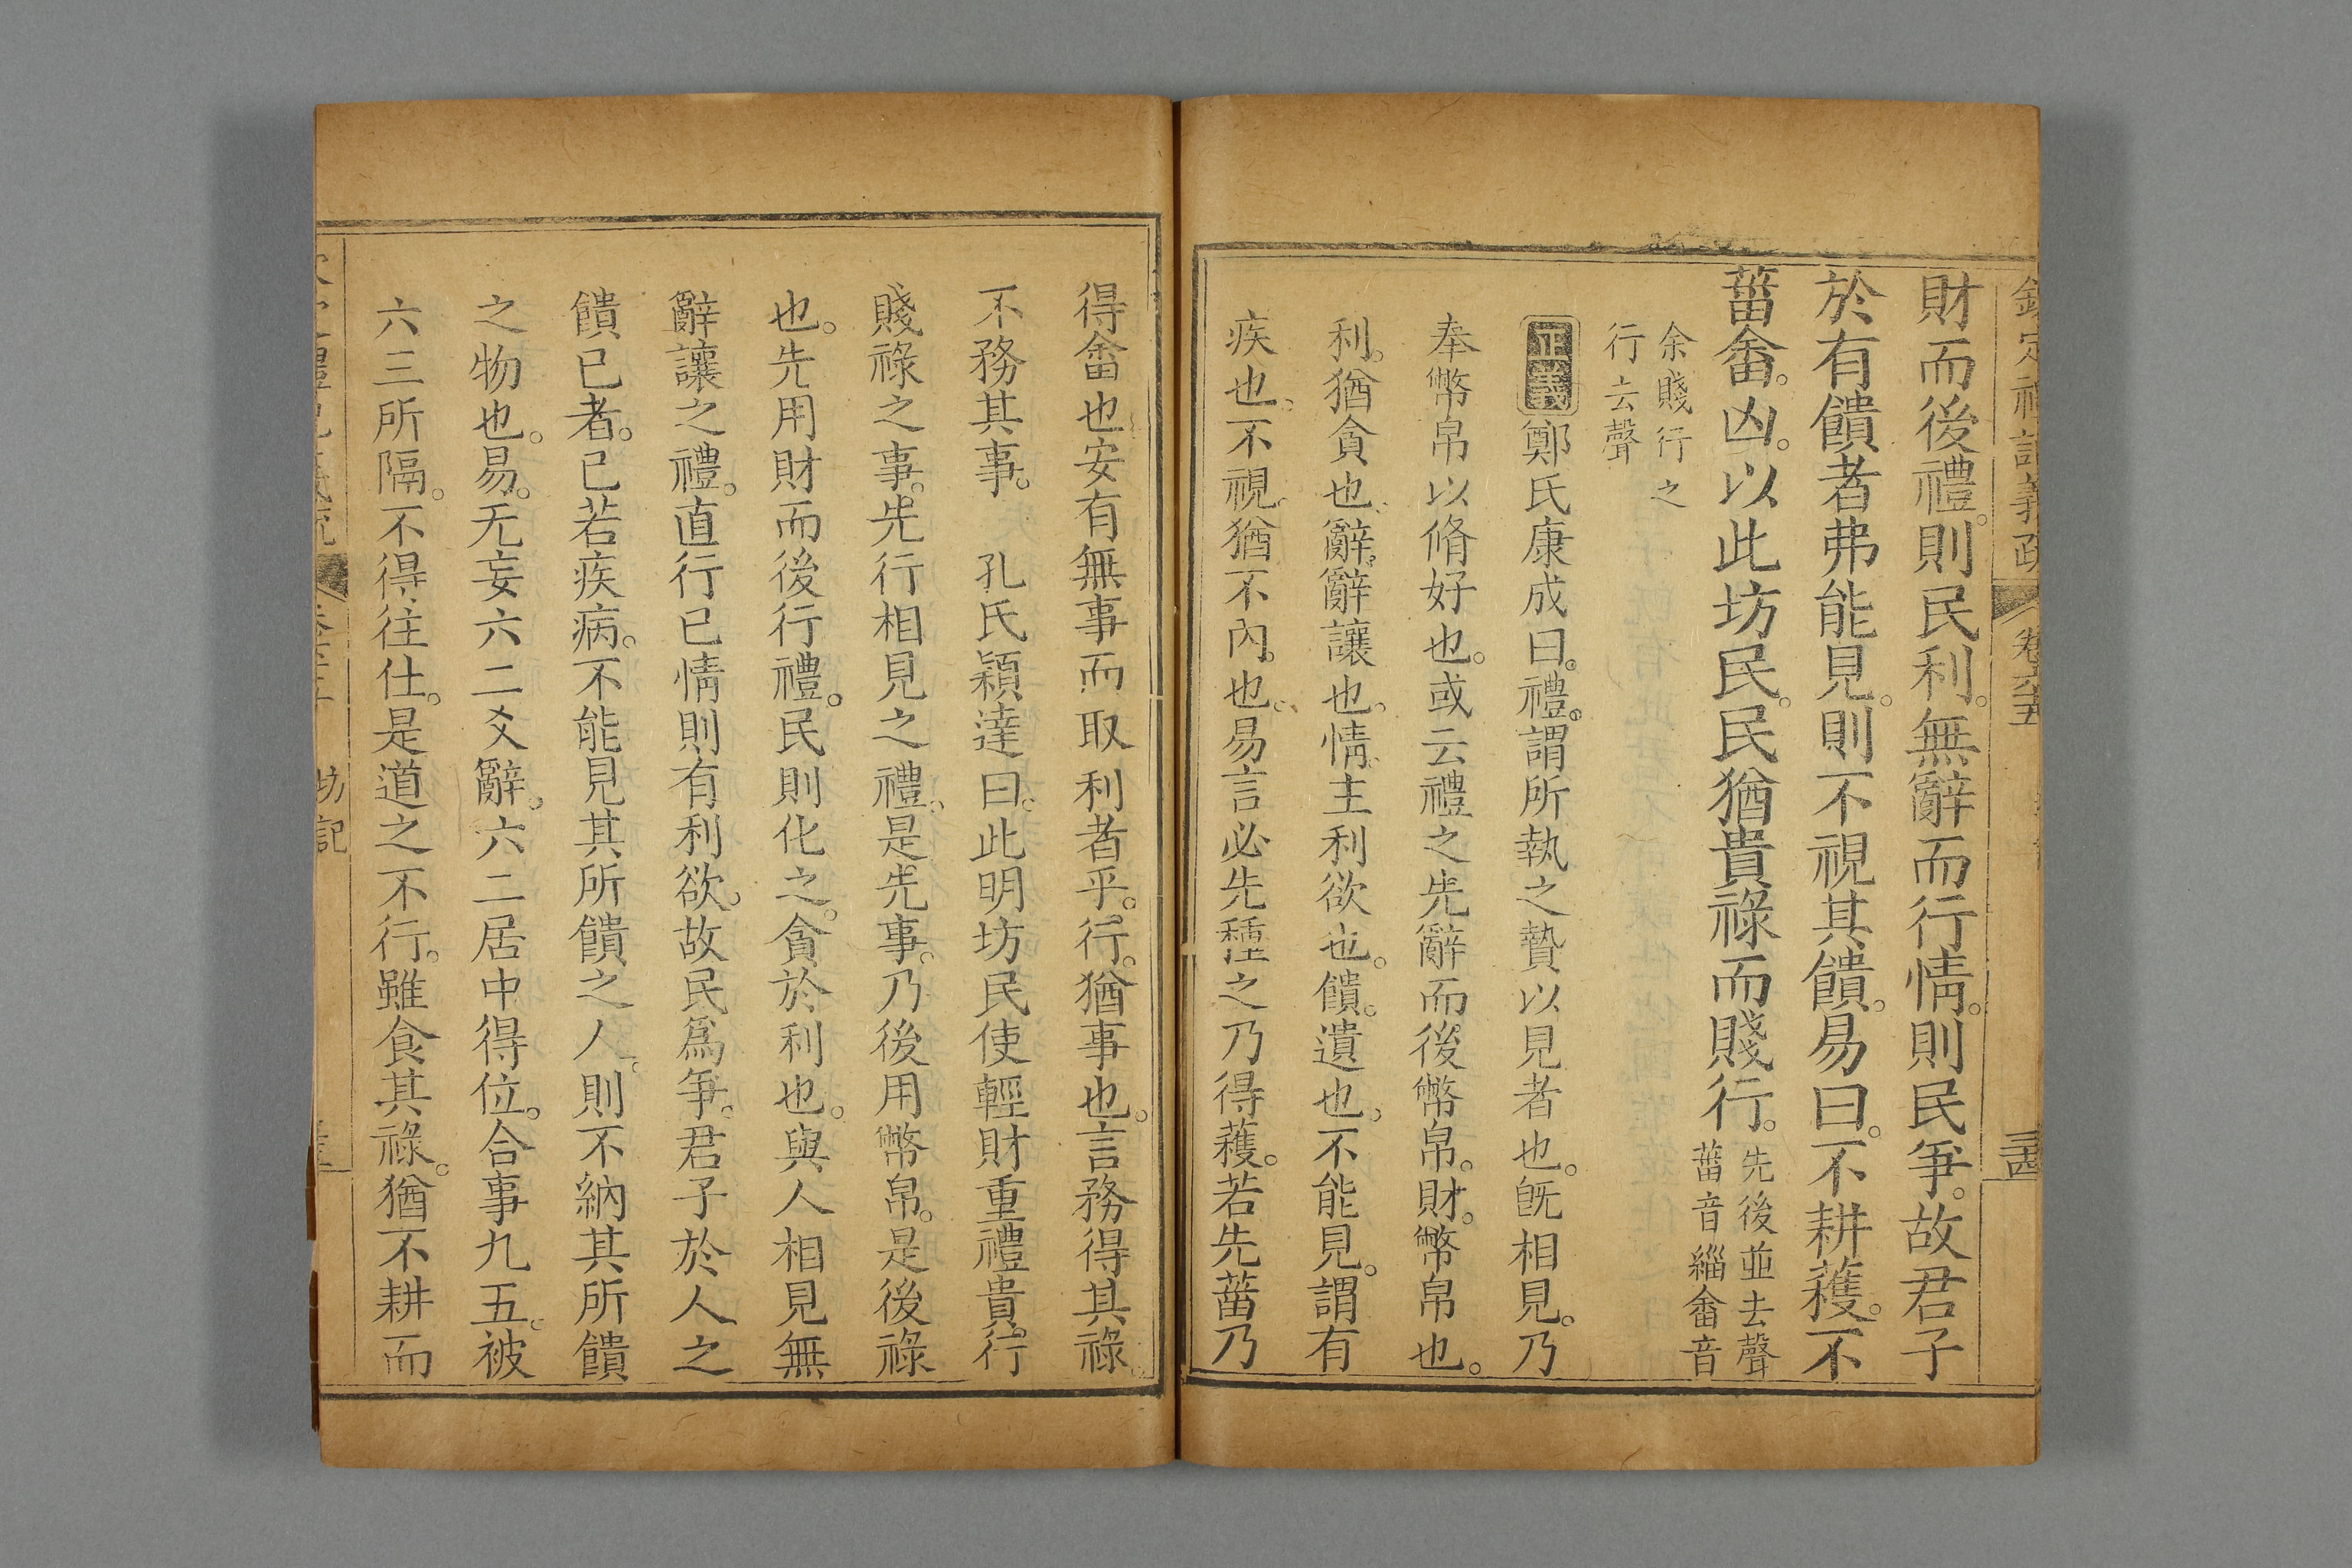 欽定禮記義疏 卷六十五 三十四
財而後禮。則民利。無辭而行情。則民爭。故君子
於有饋者弗能見。則不視其饋。易曰。不耕穫。不
菑畬。凶。以此坊民。民猶貴祿而賤行。先後並去聲
菑音緇畬音
余賤行之
行去聲
正義鄭氏康成曰。禮。謂所執之贄以見者也。旣相見。乃
奉幣帛以脩好也。或云禮之先辭而後幣帛。財。幣帛也。
利。猶貪也。辭。辭讓也。情。主利欲也。饋。遺也。不能見。謂有
疾也。不視。猶不內也。易言必先種之乃得穫。若先菑乃
得畬也。安有無事而取利者乎。行。猶事也。言務得其祿。
不務其事。 孔氏穎達曰。此明坊民使輕財重禮貴行
賤祿之事。先行相見之禮。是先事。乃後用幣帛。是後祿
也。先用財而後行禮。民則化之。貪於利也。與人相見無
辭讓之禮。直行己情則有利欲。故民爲爭。君子於人之
饋己者。己若疾病。不能見其所饋之人。則不納其所饋
之物也。易。无妄六二爻辭。六二居中得位。合事九五。被
六三所隔。不得往仕。是道之不行。雖食其祿。猶不耕而
坊記